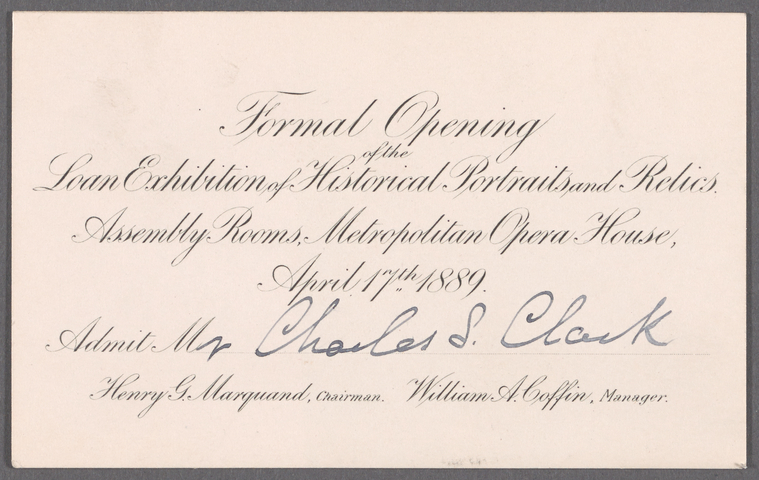 Formal Opening
of the
Loan Exhibition of Historical Portraits and Relics.
Assembly Rooms, Metropolitan Opera House,
April 17th 1889.
Admit Mr Charles S. Clark
Henry G. Marquand, Chairman. William A. Coffin, Manager.